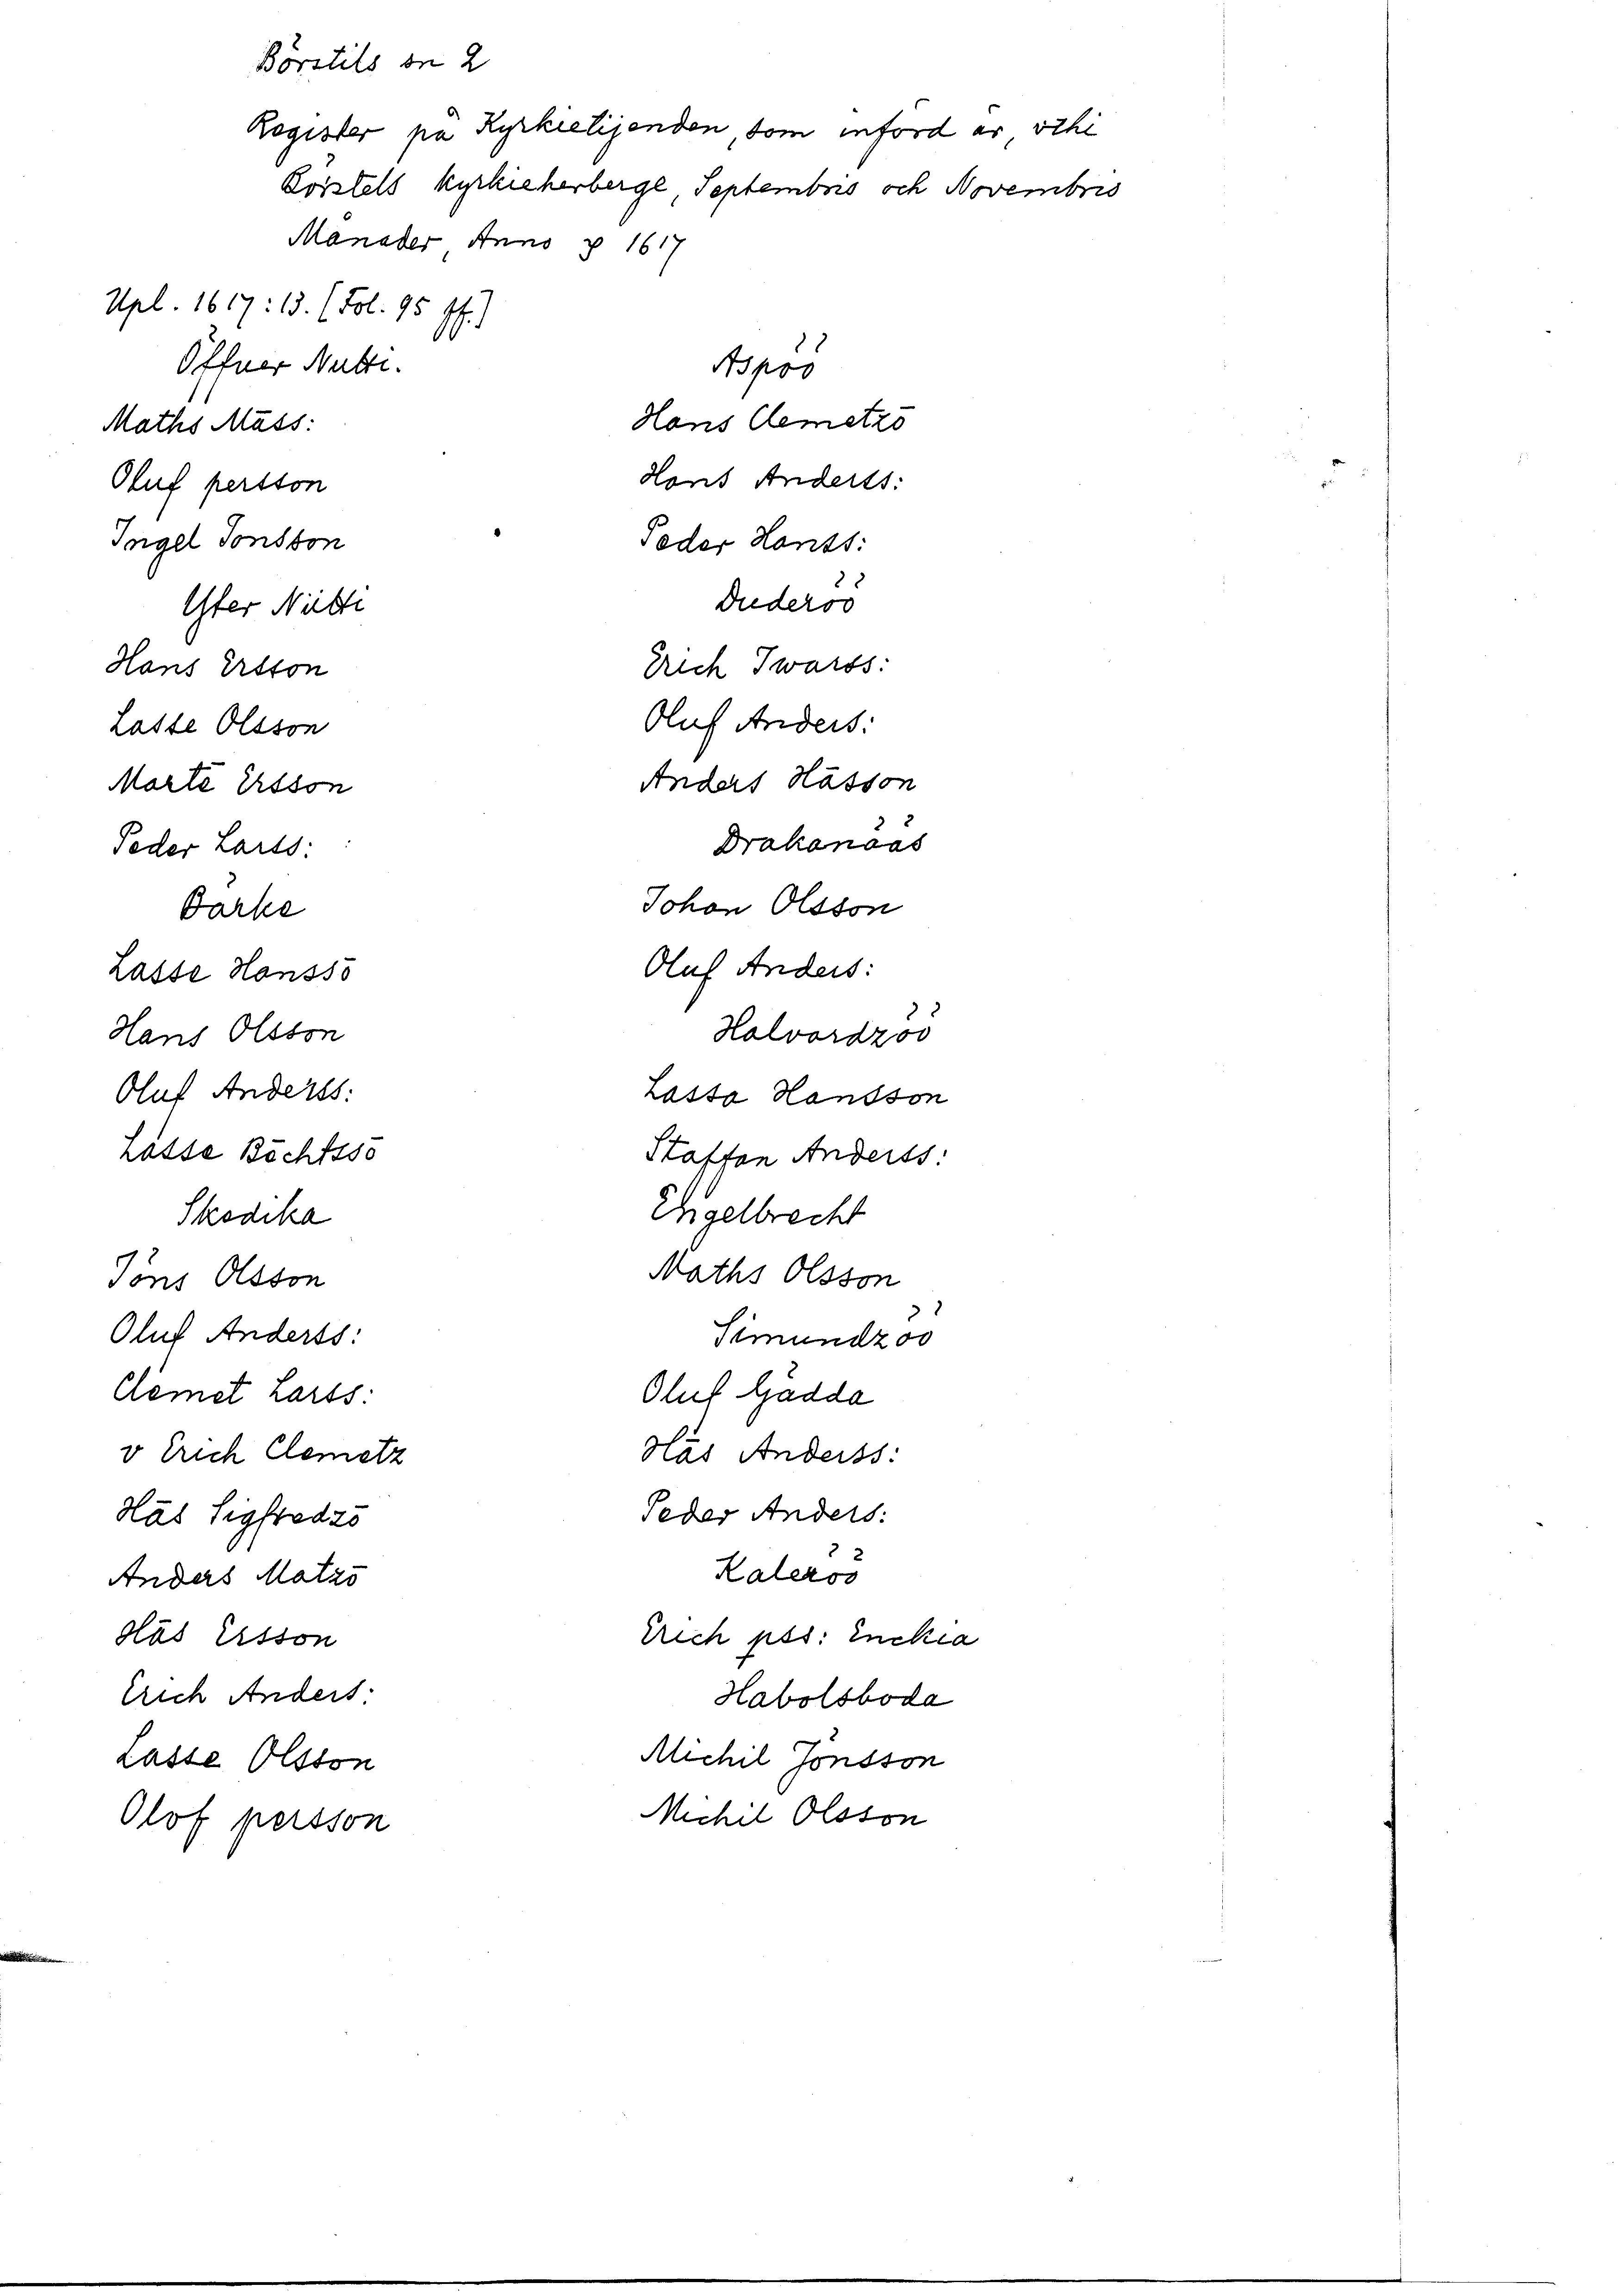 Börstils sn 2
Register på Kyrkietijenden, som införd är, vthi
Börstels kyrkieherberge, Septembris och Novembris
Månader, Anno 1617
Upl. 1617:13. (Fol. 95 ff.)
Öffuer Nutti.
Maths Māss:
Oluf persson
Ingel Jonsson
Yter Nutti
Hans Ersson
Lasse Olsson
Martē Ersson
Peder Larss:
Barke
Lasse Hanssō
Hans Olsson
Oluf Anderss:
Lasse Bēchtssō
Skedika
Jöns Olsson
Oluf Anderss:
Clemet Larss:
v Erich Clemetz
Hās Sigfredzō
Anders Matzō
Hās Ersson
Erich Anders:
Lasse Olsson
Olof persson
Aspöö
Hans Clemetzō
Hans Anderss:
Peder Hanss:
Duderöö
Erich Iwarss:
Oluf Anders:
Anders Hāsson
Drakanääs
Johan Olsson
Oluf Anders:
Halvardzöö
Lassa Hansson
Staffan Anderss:
Engelbrecht
Maths Olsson
Simundzöö
Oluf Gädda
Hās Anderss:
Peder Anders:
Raleröö
Erich pss: Enckia
Habolsboda
Michil Jönsson
Michil Olsson